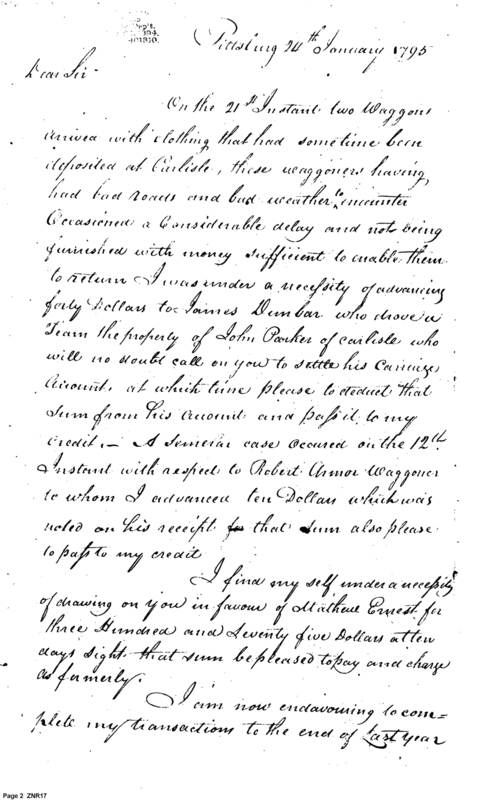 Pittsburg 24th January 1795
Dear Sir
On the 21st Instant two Waggons
arrived with clothing that had sometime been
deposited at Carlisle, these waggoners having
had bad roads and bad weather to encounter
Occasioned a Considerable delay and not being
furnished with money sufficient to enable them
to return I was under a necessity of advancing
forty Dollars to James Dunbar who drove a
Team the property of John Parker of Carlisle who
will no doubt call on you to settle his Carriage
Account, at which time please to deduct that
Sum from his account and pass it to my
Credit. – A Semerar case occured on the 12th
Instant with respect to Robert Armor Waggoner
to whom I advanced ten Dollars which was
noted on his receipt for that sum also please
to pass to my credit
I find my self under a necessity
of drawing on you in favour of Mathew Ernest for
three Hundred and Seventy five Dollars at ten
days sight that sum be pleased to pay and charge
as formerly.
I am now endavouring to com=
plete my transactions to the end of Last year
Page 2 ZNR17